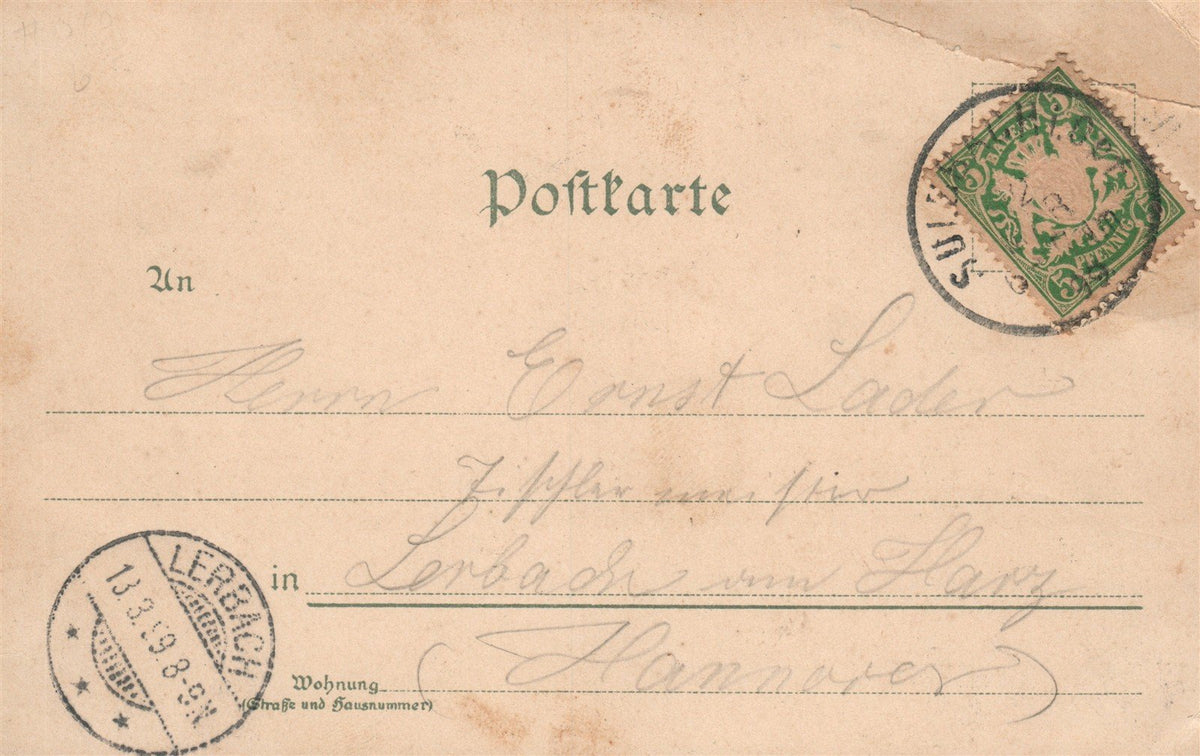 Postkarte
5 5
BAYERN
PFENNIG
5 5
An
Herrn Ernst Lader
Tischlermeister
in Lerbach am Harz
LERBACH
13.3.99.8-9N.
Wohnung (Hannover)
(Straße und Hausnummer)